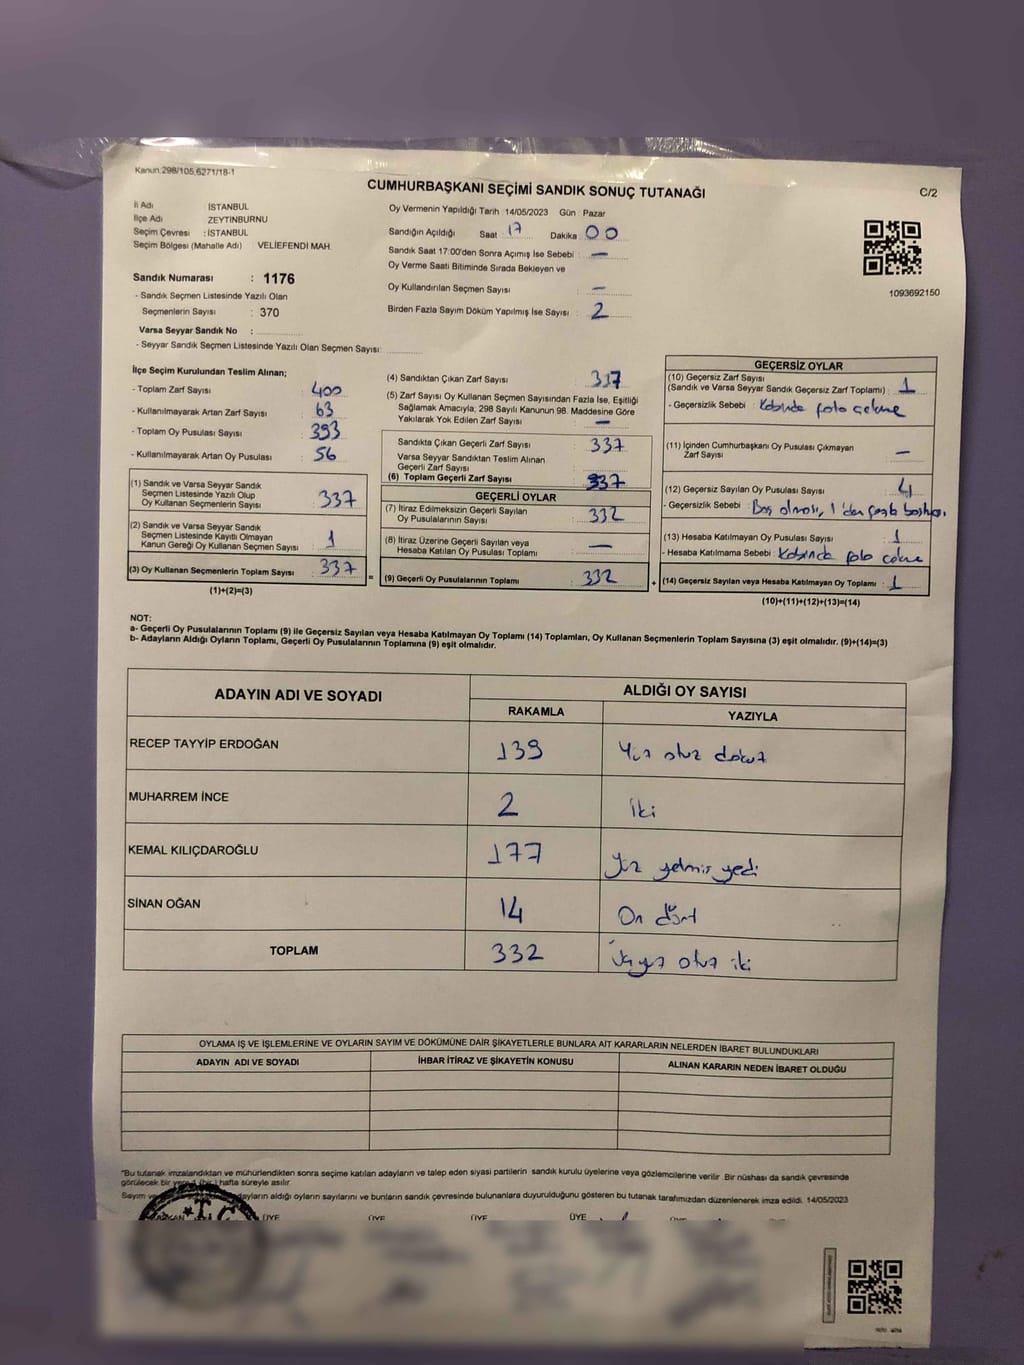 Kanun.298/105,6271/18-1
CUMHURBAŞKANI SEÇİMİ SANDIK SONUÇ TUTANAĞI
C/2
İl Adı İSTANBUL
İlçe Adı ZEYTINBURNU
Seçim Çevresi : İSTANBUL
Seçim Bölgesi (Mahalle Adı) VELİEFENDİ MAH.
Oy Vermenin Yapıldığı Tarih 14/05/2023 Gün Pazar
Sandığın Açıldığı Saat 17 Dakika 00
Sandık Saat 17:00'den Sonra Açımış İse Sebebi : —
Oy Verme Saati Bitiminde Sırada Bekleyen ve
Oy Kullandırılan Seçmen Sayısı : —
Birden Fazla Sayım Döküm Yapılmış İse Sayısı : 2
1093692150
Sandık Numarası : 1176
- Sandık Seçmen Listesinde Yazılı Olan
Seçmenlerin Sayısı : 370
Varsa Seyyar Sandık No :
- Seyyar Sandık Seçmen Listesinde Yazılı Olan Seçmen Sayısı:
İlçe Seçim Kurulundan Teslim Alınan;
- Toplam Zarf Sayısı : 400
- Kullanılmayarak Artan Zarf Sayısı : 63
- Toplam Oy Pusulası Sayısı : 393
- Kullanılmayarak Artan Oy Pusulası : 56
(1) Sandık ve Varsa Seyyar Sandık
Seçmen Listesinde Yazılı Olup
Oy Kullanan Seçmenlerin Sayısı : 337
(2) Sandık ve Varsa Seyyar Sandık
Seçmen Listesinde Kayıtlı Olmayan
Kanun Gereği Oy Kullanan Seçmen Sayısı : 1
(3) Oy Kullanan Seçmenlerin Toplam Sayısı : 337
(1)+(2)=(3)
=
(4) Sandıktan Çıkan Zarf Sayısı : 337
(5) Zarf Sayısı Oy Kullanan Seçmen Sayısından Fazla İse, Eşitliği
Sağlamak Amacıyla, 298 Sayılı Kanunun 98. Maddesine Göre
Yakılarak Yok Edilen Zarf Sayısı : —
Sandıkta Çıkan Geçerli Zarf Sayısı : 337
Varsa Seyyar Sandıktan Teslim Alınan
Geçerli Zarf Sayısı :
(6) Toplam Geçerli Zarf Sayısı : 337
GEÇERLİ OYLAR
(7) İtiraz Edilmeksizin Geçerli Sayılan
Oy Pusulalarının Sayısı : 332
(8) İtiraz Üzerine Geçerli Sayılan veya
Hesaba Katılan Oy Pusulası Toplamı : —
(9) Geçerli Oy Pusulalarının Toplamı : 332
+
GEÇERSİZ OYLAR
(10) Geçersiz Zarf Sayısı
(Sandık ve Varsa Seyyar Sandık Geçersiz Zarf Toplamı) : 1
- Geçersizlik Sebebi : Kabinde foto çekme
(11) İçinden Cumhurbaşkanı Oy Pusulası Çıkmayan
Zarf Sayısı : —
(12) Geçersiz Sayılan Oy Pusulası Sayısı : 4
- Geçersizlik Sebebi : Boş olması, 1'den fazla
(13) Hesaba Katılmayan Oy Pusulası Sayısı : 1
- Hesaba Katılmama Sebebi : Kabinde foto çekme
(14) Geçersiz Sayılan veya Hesaba Katılmayan Oy Toplamı : 1
(10)+(11)+(12)+(13)=(14)
NOT:
a- Geçerli Oy Pusulalarının Toplamı (9) ile Geçersiz Sayılan veya Hesaba Katılmayan Oy Toplamı (14) Toplamları, Oy Kullanan Seçmenlerin Toplam Sayısına (3) eşit olmalıdır. (9)+(14)=(3)
b- Adayların Aldığı Oyların Toplamı, Geçerli Oy Pusulalarının Toplamına (9) eşit olmalıdır.
ADAYIN ADI VE SOYADI
ALDIĞI OY SAYISI
RAKAMLA YAZIYLA
RECEP TAYYİP ERDOĞAN 139 Yüz otuz dokuz
MUHARREM İNCE 2 İki
KEMAL KILIÇDAROĞLU 177 Yüz yetmiş yedi
SİNAN OĞAN 14 On dört
TOPLAM 332 Üçyüz otuz iki
OYLAMA İŞ VE İŞLEMLERİNE VE OYLARIN SAYIM VE DÖKÜMÜNE DAİR ŞİKAYETLERLE BUNLARA AİT KARARLARIN NELERDEN İBARET BULUNDUKLARI
ADAYIN ADI VE SOYADI İHBAR İTİRAZ VE ŞİKAYETİN KONUSU ALINAN KARARIN NEDEN İBARET OLDUĞU
"Bu tutanak imzalandıktan ve mühürlendikten sonra seçime katılan adayların ve talep eden siyasi partilerin sandık kurulu üyelerine veya gözlemcilerine verilir. Bir nüshası da sandık çevresinde
görülecek bir yere 1 (bir) hafta süreyle asılır.
Sayım ve adayların aldığı oyların sayılarını ve bunların sandık çevresinde bulunanlara duyurulduğunu gösteren bu tutanak tarafımızdan düzenlenerek imza edildi. 14/05/2023
ÜYE ÜYE ÜYE ÜYE ÜYE
T.C